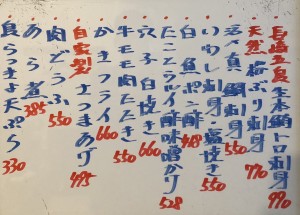 長崎五島 生本鮪トロ刺身 990
天然 桜ぶり刺身 770
活〆真鯛刺身 550
いわし刺身 塩焼き 550
白魚ポン酢 418
たことうるい酢味噌かけ 528
穴子白焼き 660
牛モモ肉たたき 550
かきフライ 660
自家製 さつまあげ 495
肉どうふ 550
あら煮 385
島らっきょ天ぷら 330